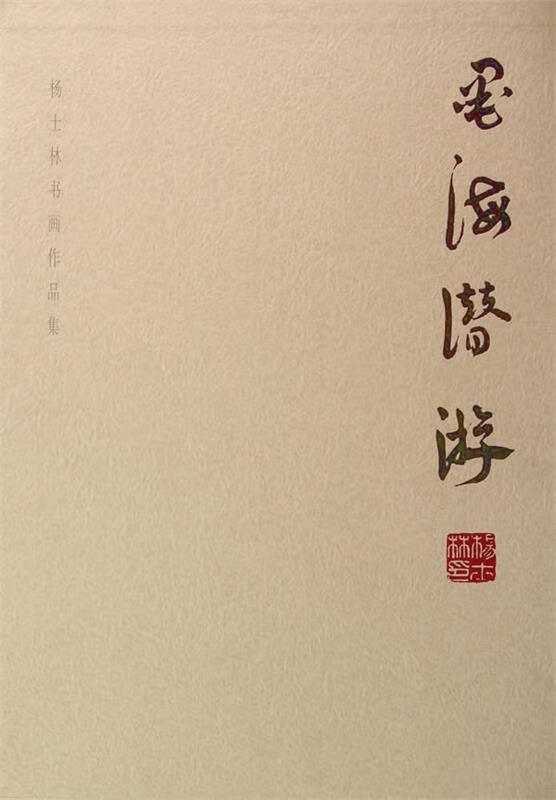 墨海潜游
杨士林印
杨士林书画作品集